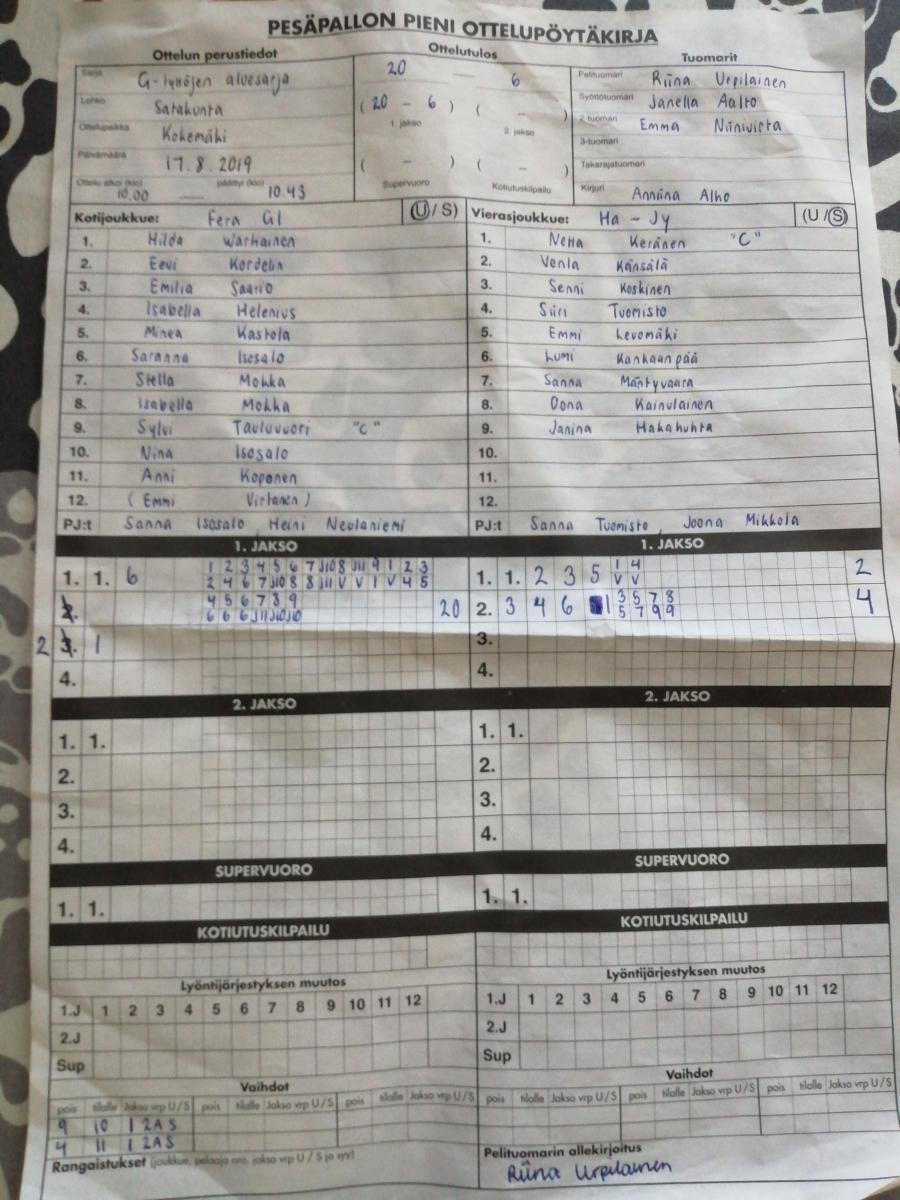 PESÄPALLON PIENI OTTELUPÖYTÄKIRJA
Ottelun perustiedot Ottelutulos Tuomarit
Sarja G-tyttöjen aluesarja 20 — 6 Pelituomari Riina Urpilainen
Lohko Satakunta (20 - 6) ( - ) Syöttötuomari Janella Aalto
1. jakso 2. jakso 2-tuomari Emma Niinivirta
Ottelupaikka Kokemäki 3-tuomari
Päivämäärä 17.8.2019 ( - ) ( - ) Takarajatuomari
Ottelu alkoi (klo) 10.00 — päättyi (klo) 10.43 Supervuoro Kotiutuskilpailu Kirjuri Anniina Alho
Kotijoukkue: Fera G1 (U / S) Vierasjoukkue: Ha - Jy (U / S)
1. Hilda Warhainen 1. Netta Keränen "C"
2. Eevi Kordelin 2. Venla Känsälä
3. Emilia Saario 3. Senni Koskinen
4. Isabella Helenius 4. Siiri Tuomisto
5. Minea Kastola 5. Emmi Levomäki
6. Saranna Isosalo 6. Lumi Kankaanpää
7. Stella Mohka 7. Sanna Mäntyvaara
8. Isabella Mohka 8. Oona Kainulainen
9. Sylvi Tauluvuori "C" 9. Janina Hakahuhta
10. Nina Isosalo 10.
11. Anni Koponen 11.
12. (Emmi Virtanen) 12.
PJ:t Sanna Isosalo, Heini Neulaniemi PJ:t Sanna Tuomisto, Joona Mikkola
1. JAKSO 1. JAKSO
1 2 3 4 5 6 7 J10 8 J11 9 1 2 3 1 4
1. 1. 6 2 4 6 7 J10 8 8 J11 V V 1 V 4 5 1. 1. 2 3 5 V V 2
4 5 6 7 8 9 3 5 7 8
2. 6 6 6 J11 J10 J10 20 2. 3 4 6 1 5 7 9 9 4
2 3. 1 3.
4. 4.
2. JAKSO 2. JAKSO
1. 1. 1. 1.
2. 2.
3. 3.
4. 4.
SUPERVUORO SUPERVUORO
1. 1. 1. 1.
KOTIUTUSKILPAILU KOTIUTUSKILPAILU
Lyöntijärjestyksen muutos Lyöntijärjestyksen muutos
1.J 1 2 3 4 5 6 7 8 9 10 11 12 1.J 1 2 3 4 5 6 7 8 9 10 11 12
2.J 2.J
Sup Sup
Vaihdot Vaihdot
pois tilalle Jakso vrp U/S pois tilalle Jakso vrp U/S pois tilalle pois tilalle Jakso vrp U/S pois tilalle Jakso vrp U/S pois tilalle
9 10 1 2A S
4 11 1 2A S
Rangaistukset (joukkue, pelaaja nro, jakso vrp U / S ja syy) Pelituomarin allekirjoitus
Riina Urpilainen